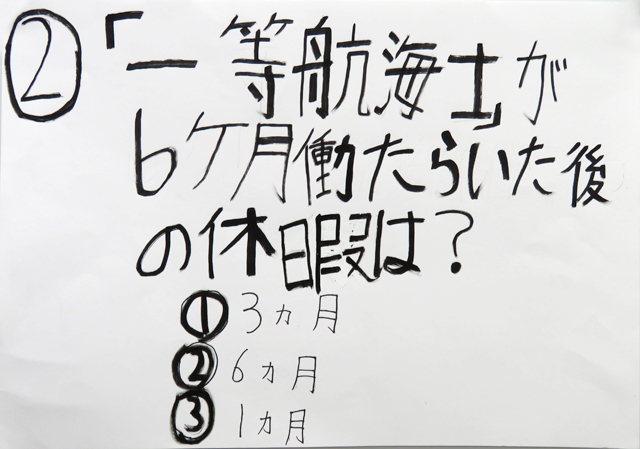 ② 「一等航海士」が
6ケ月働たらいた後
の休暇は?
① 3ヵ月
② 6ヵ月
③ 1ヵ月